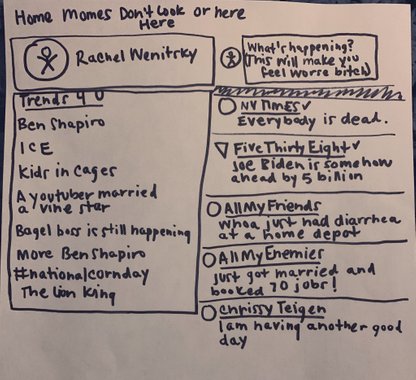 Home Momes Don't Look or here
Here
Rachel Wenitsky
What's happening?
(This will make you
feel worse bitch)
Trends 4 U
Ben Shapiro
ICE
Kids in Cages
A youtuber married
a vine star
Bagel boss is still happening
More Ben Shapiro
#nationalcornday
The Lion King
NY TIMES✓
Everybody is dead.
FiveThirtyEight✓
Joe Biden is somehow
ahead by 5 billion
All My Friends
whoa just had diarrhea
at a home depot
All My Enemies
just got married and
booked 70 jobs!
Chrissy Teigen
I am having another good
day